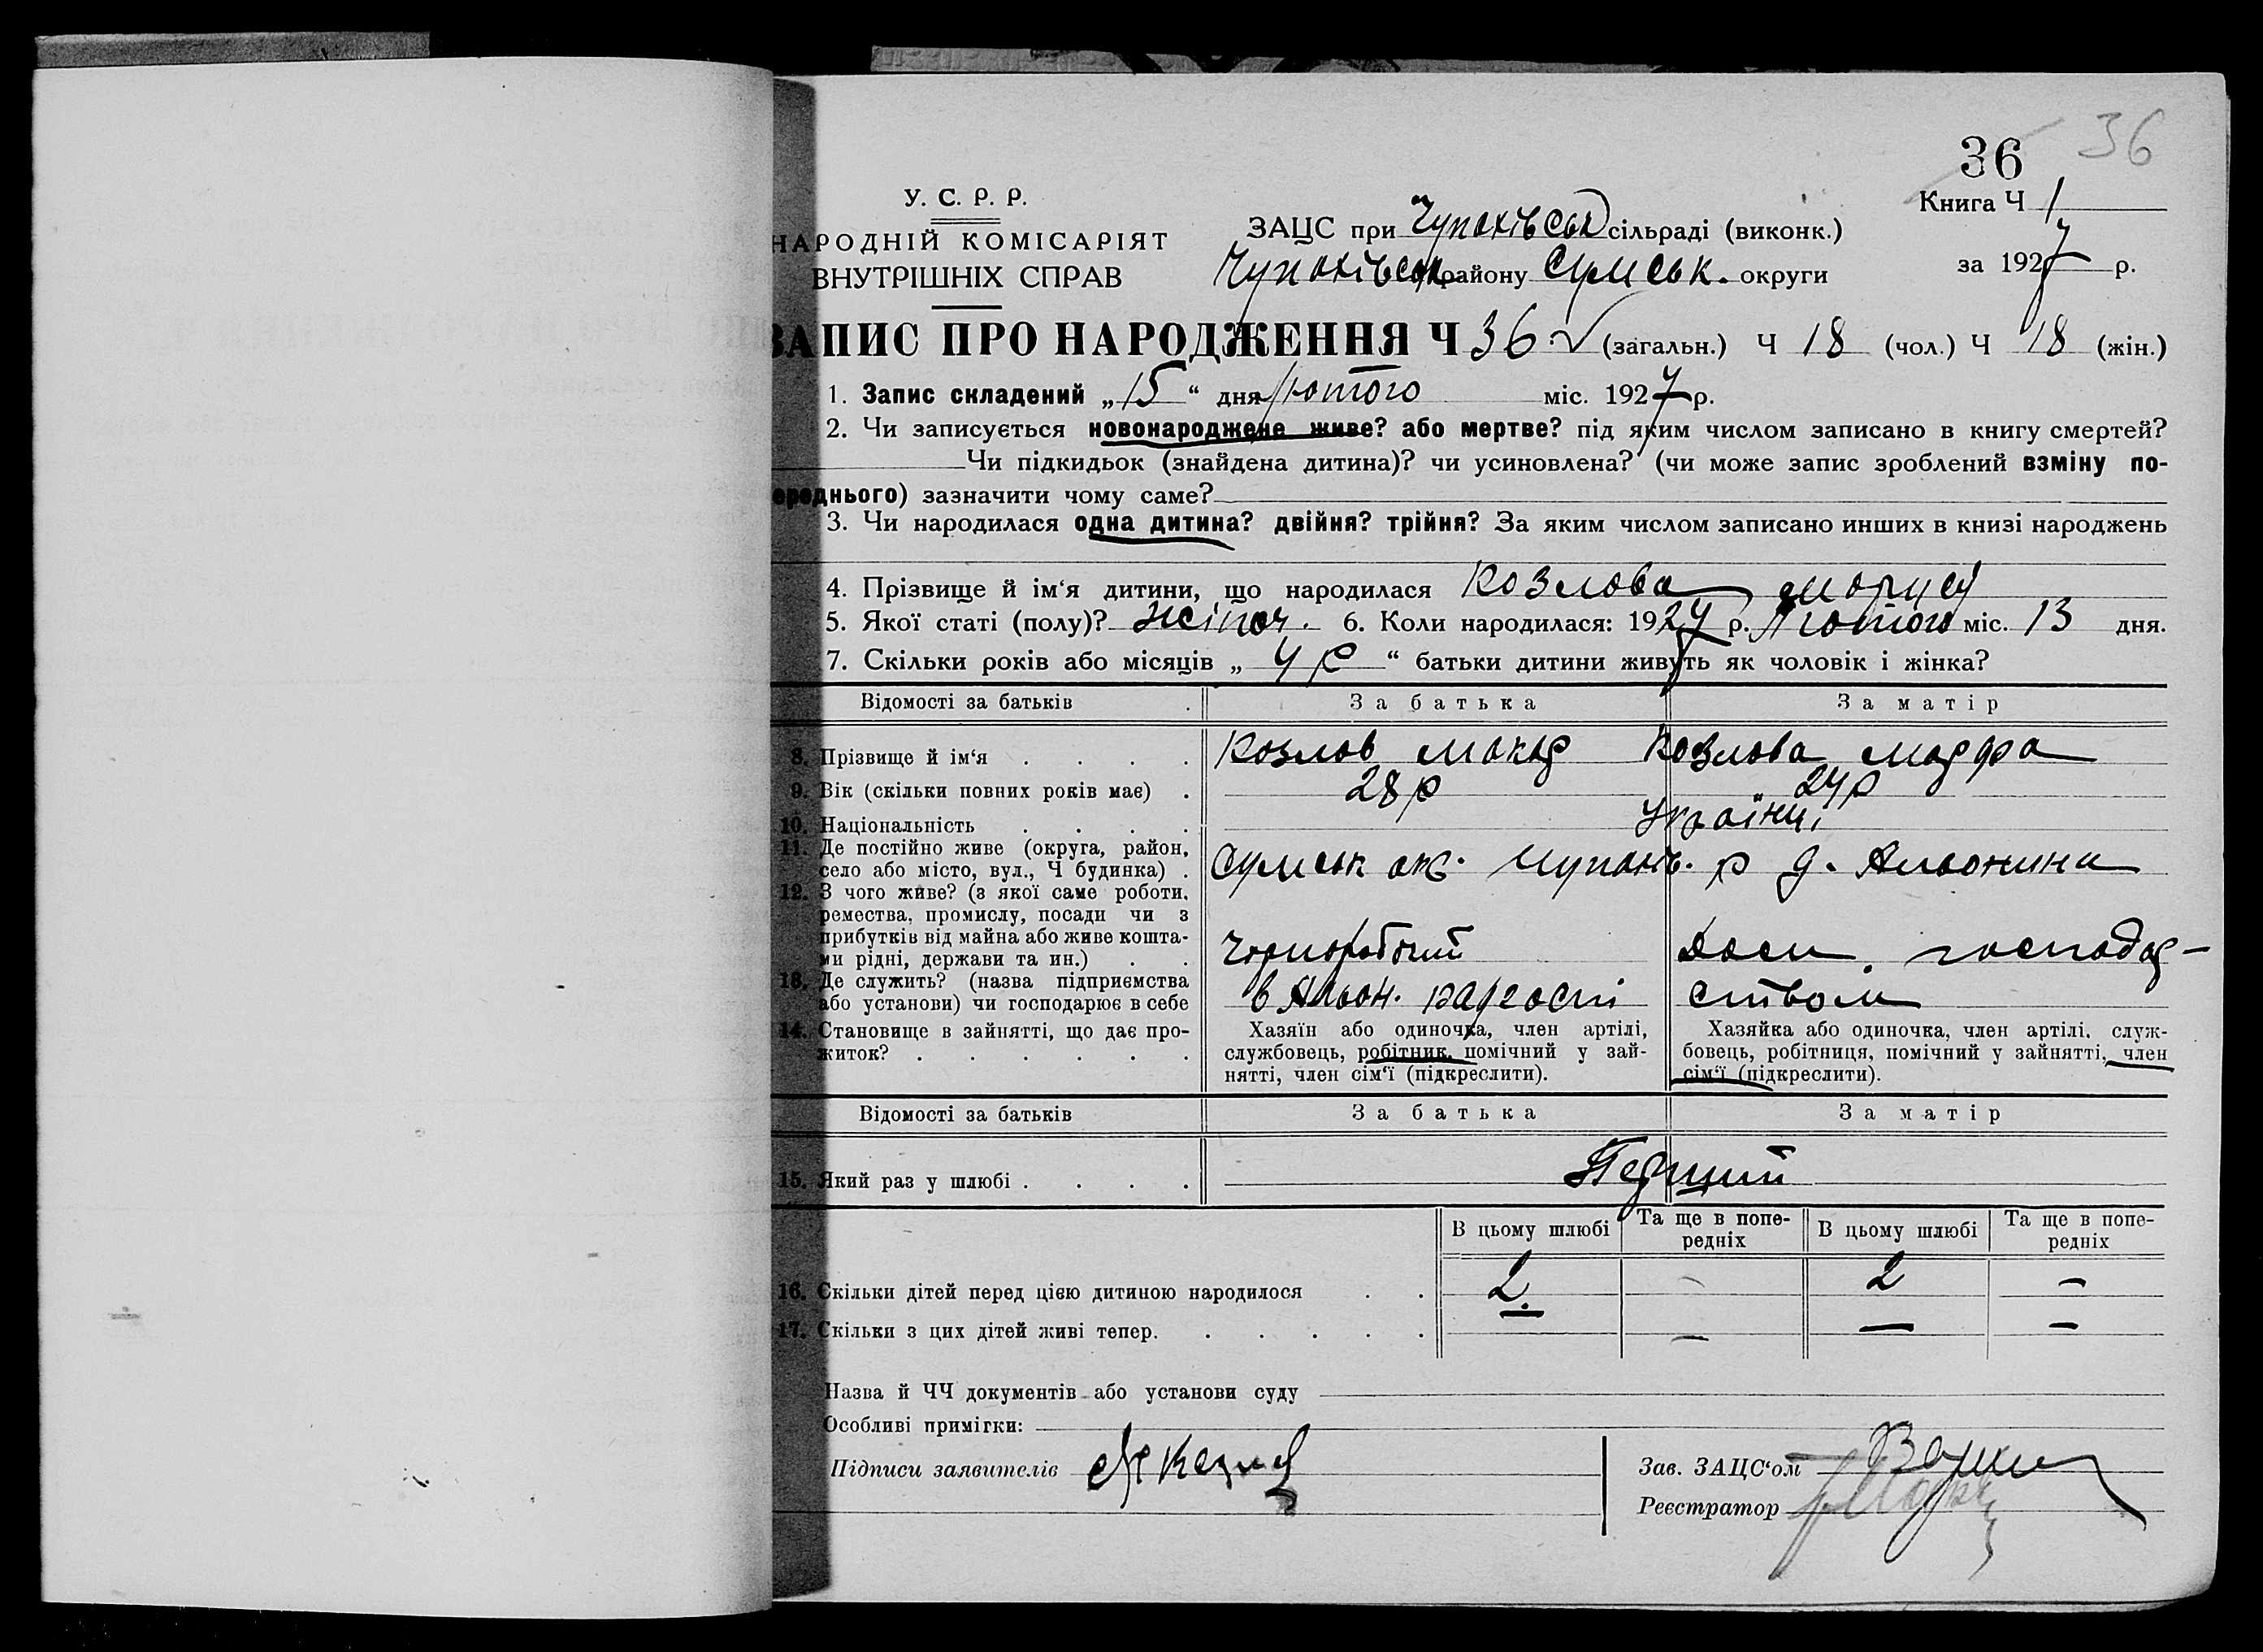 36 36
У. С. Р. Р.
Книга Ч 1
НАРОДНІЙ КОМІСАРІЯТ
ВНУТРІШНІХ СПРАВ
ЗАЦС при Чупахівськ сільраді (виконк.)
Чупахівськ району Сумськ. округи
за 1927 р.
ЗАПИС ПРО НАРОДЖЕННЯ Ч 36 (загальн.) Ч 18 (чол.) Ч 18 (жін.)
1. Запис складений „15“ дня лютого міс. 1927 р.
2. Чи записується новонароджене живе? або мертве? під яким числом записано в книгу смертей?
Чи підкидьок (знайдена дитина)? чи усиновлена? (чи може запис зроблений взміну по-
ереднього) зазначити чому саме?
3. Чи народилася одна дитина? двійня? трійня? За яким числом записано инших в книзі народжень
4. Прізвище й ім‘я дитини, що народилася Козлова
5. Якої статі (полу)? жіноч. 6. Коли народилася: 1927 р. Лютого міс. 13 дня.
7. Скільки років або місяців „ 4 р “ батьки дитини живуть як чоловік і жінка?
Відомості за батьків За батька За матір
8. Прізвище й ім‘я Козлов Макар Козлова Марфа
9. Вік (скільки повних років має) 28 р 24 р
10. Національність Українці
11. Де постійно живе (округа, район,
село або місто, вул., Ч будинка) Сумськ окр. Чупахів. р д.
12. З чого живе? (з якої саме роботи,
ремества, промислу, посади чи з
прибутків від майна або живе кошта-
ми рідні, держави та ин.) Чорноробочий Дом. господар-
13. Де служить? (назва підприємства
або установи) чи господарює в себе в радгоспі ством
14. Становище в зайнятті, що дає про-
житок?
Хазяїн або одиночка, член артілі,
службовець, робітник, помічний у зай-
нятті, член сім‘ї (підкреслити).
Хазяйка або одиночка, член артілі, служ-
бовець, робітниця, помічний у зайнятті, член
сім‘ї (підкреслити).
Відомості за батьків За батька За матір
15. Який раз у шлюбі Перший
В цьому шлюбі Та ще в попе-
редніх В цьому шлюбі Та ще в попе-
редніх
16. Скільки дітей перед цією дитиною народилося 2 - 2 -
17. Скільки з цих дітей живі тепер. - - - -
Назва й ЧЧ документів або установи суду
Особливі примітки:
Підписи заявителів
Зав. ЗАЦС‘ом
Реєстратор